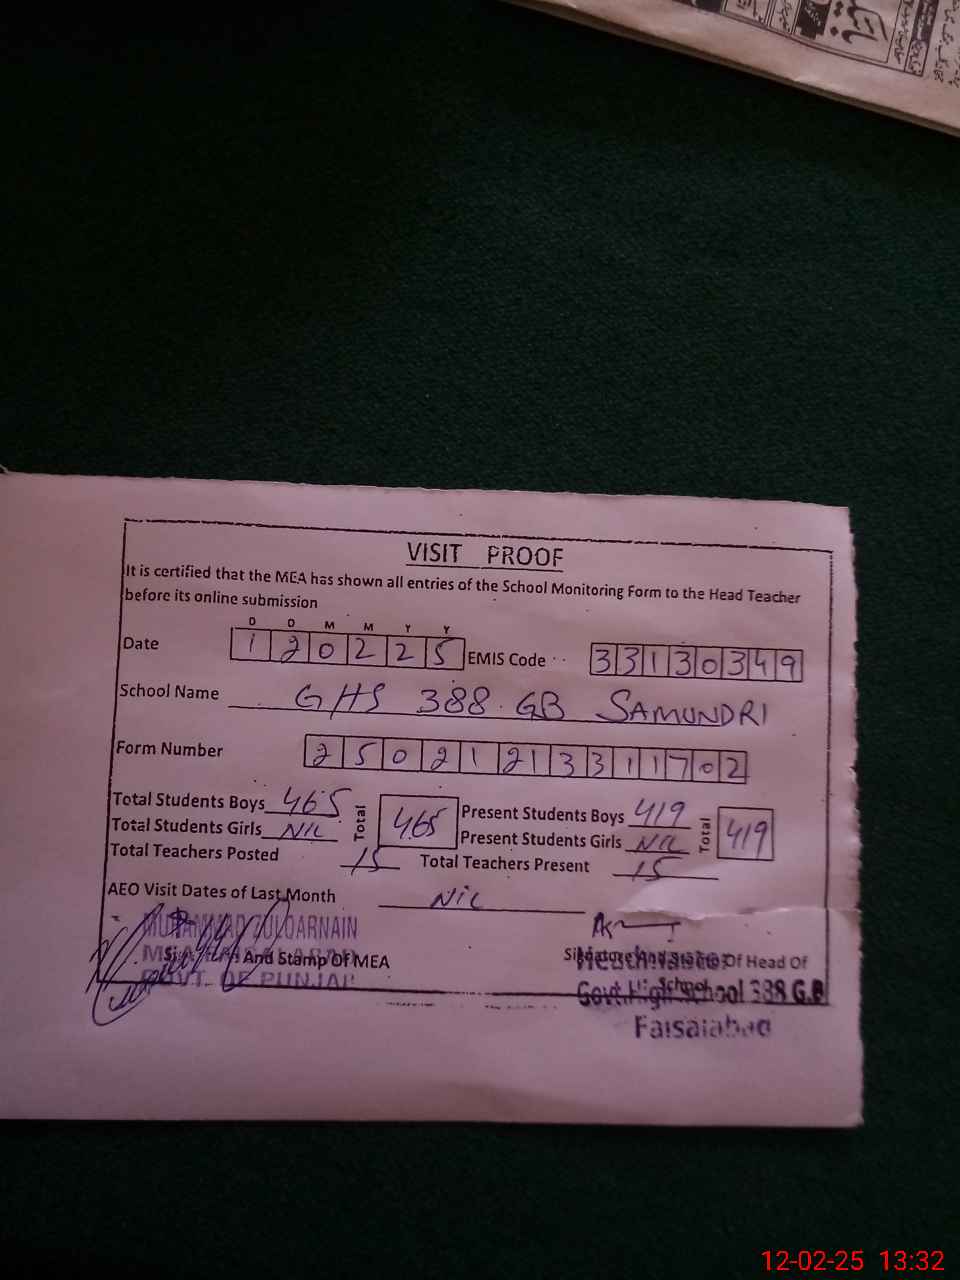 VISIT PROOF
It is certified that the MEA has shown all entries of the School Monitoring Form to the Head Teacher
before its online submission
D D M M Y Y
Date 1 2 0 2 2 5 EMIS Code 3 3 1 3 0 3 4 9
School Name GHS 388 GB SAMUNDRI
Form Number 2 5 0 2 1 2 1 3 3 1 1 7 0 2
Total Students Boys 465 Total 465 Present Students Boys 419 Total 419
Total Students Girls NIL Present Students Girls NIL
Total Teachers Posted 15 Total Teachers Present 15
AEO Visit Dates of Last Month NiL
MUHAMMAD ZULQARNAIN
And Stamp Of MEA
GOVT. OF PUNJAB
Of Head Of
School
Govt. High School 388 G.B
Faisalabad
12-02-25 13:32